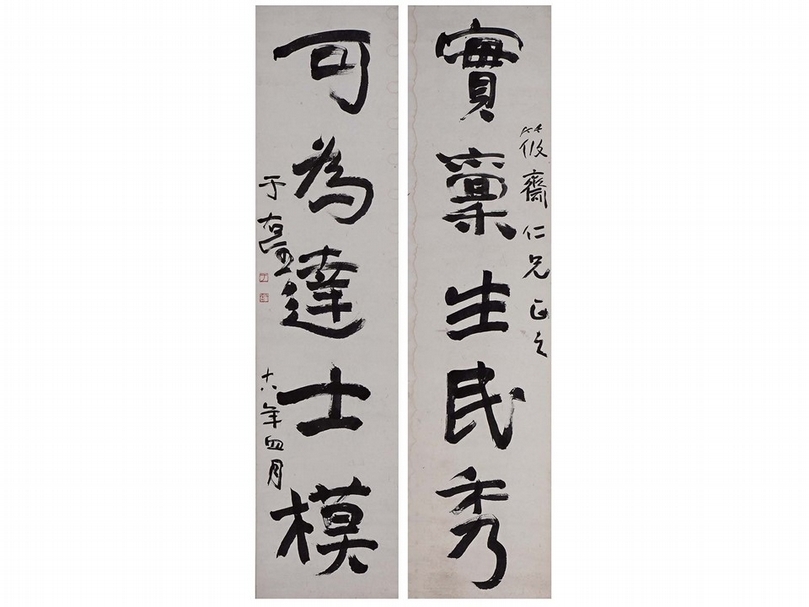 實稟生民秀
筱齋仁兄正之
可為達士模
于右任
十八年四月